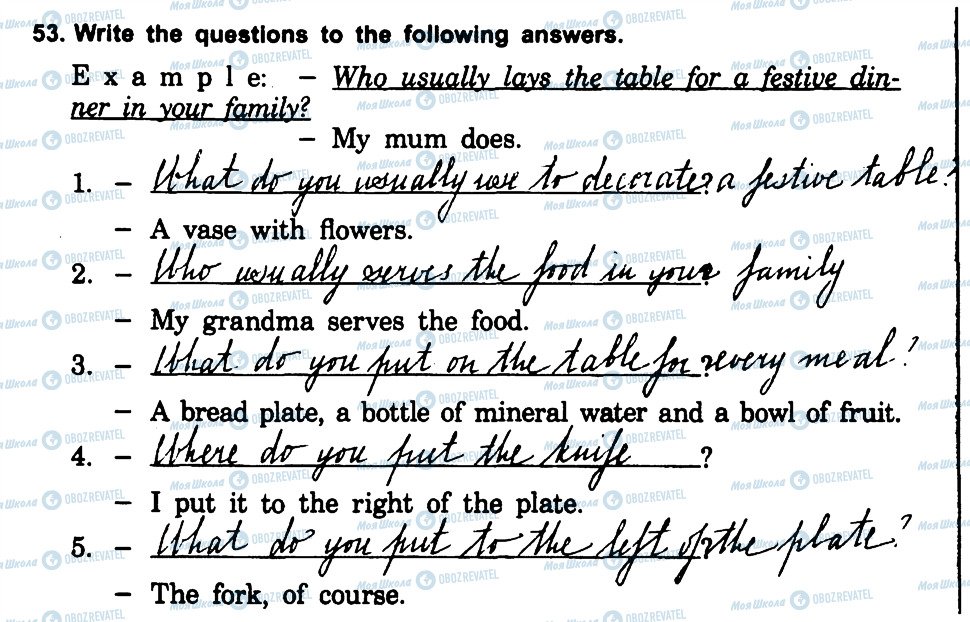 53. Write the questions to the following answers.
E x a m p l e: – Who usually lays the table for a festive din-
ner in your family?
– My mum does.
1. – What do you usually use to decorate? a festive table?
– A vase with flowers.
2. – Who usually serves the food in your? family
– My grandma serves the food.
3. – What do you put on the table for? every meal?
– A bread plate, a bottle of mineral water and a bowl of fruit.
4. – Where do you put the knife ?
– I put it to the right of the plate.
5. – What do you put to the left of? the plate?
– The fork, of course.